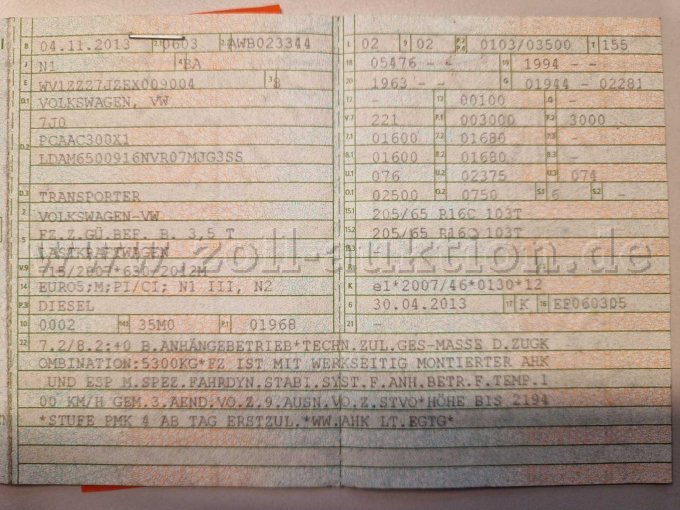 B 04.11.2013 2.1 0603 2.2 AWB023344
J N1 4 BA
E WV1ZZZ7JZEX009004 3 8
D.1 VOLKSWAGEN, VW
7J0
D.2 PCAAC300X1
LDAM6500916NVR07MJG3SS
D.3 TRANSPORTER
2 VOLKSWAGEN-VW
5 FZ.Z.GÜ.BEF. B. 3,5 T
LASTKRAFTWAGEN
V.9 715/2007*630/2012M
14 EURO5;M;PI/CI; N1 III, N2
P.3 DIESEL
10 0002 14.1 35M0 P.1 01968
L 02 9 02 P.2 P.4 0103/03500 T 155
18 05476 - - 19 1994 - -
20 1963 - - G 01944 - 02281
12 - 13 00100 Q -
V.7 221 F.1 003000 F.2 3000
7.1 01600 7.2 01680 7.3 -
8.1 01600 8.2 01680 8.3 -
U.1 076 U.2 02375 U.3 074
O.1 02500 O.2 0750 S.1 6 S.2 -
15.1 205/65 R16C 103T
15.2 205/65 R16C 103T
15.3 -
R
K e1*2007/46*0130*12
6 30.04.2013 17 K 16 EF060305
21 -
22 7.2/8.2:+0 B.ANHÄNGEBETRIEB*TECHN.ZUL.GES-MASSE D.ZUGK
OMBINATION:5300KG*FZ IST MIT WERKSEITIG MONTIERTER AHK
UND ESP M.SPEZ.FAHRDYN.STABI.SYST.F.ANH.BETR.F.TEMP.1
00 KM/H GEM.3.AEND.VO.Z.9.AUSN.VO.Z.STVO*HÖHE BIS 2194
*STUFE PMK 4 AB TAG ERSTZUL.*WW.AHK LT.EGTG*
www.zoll-auktion.de